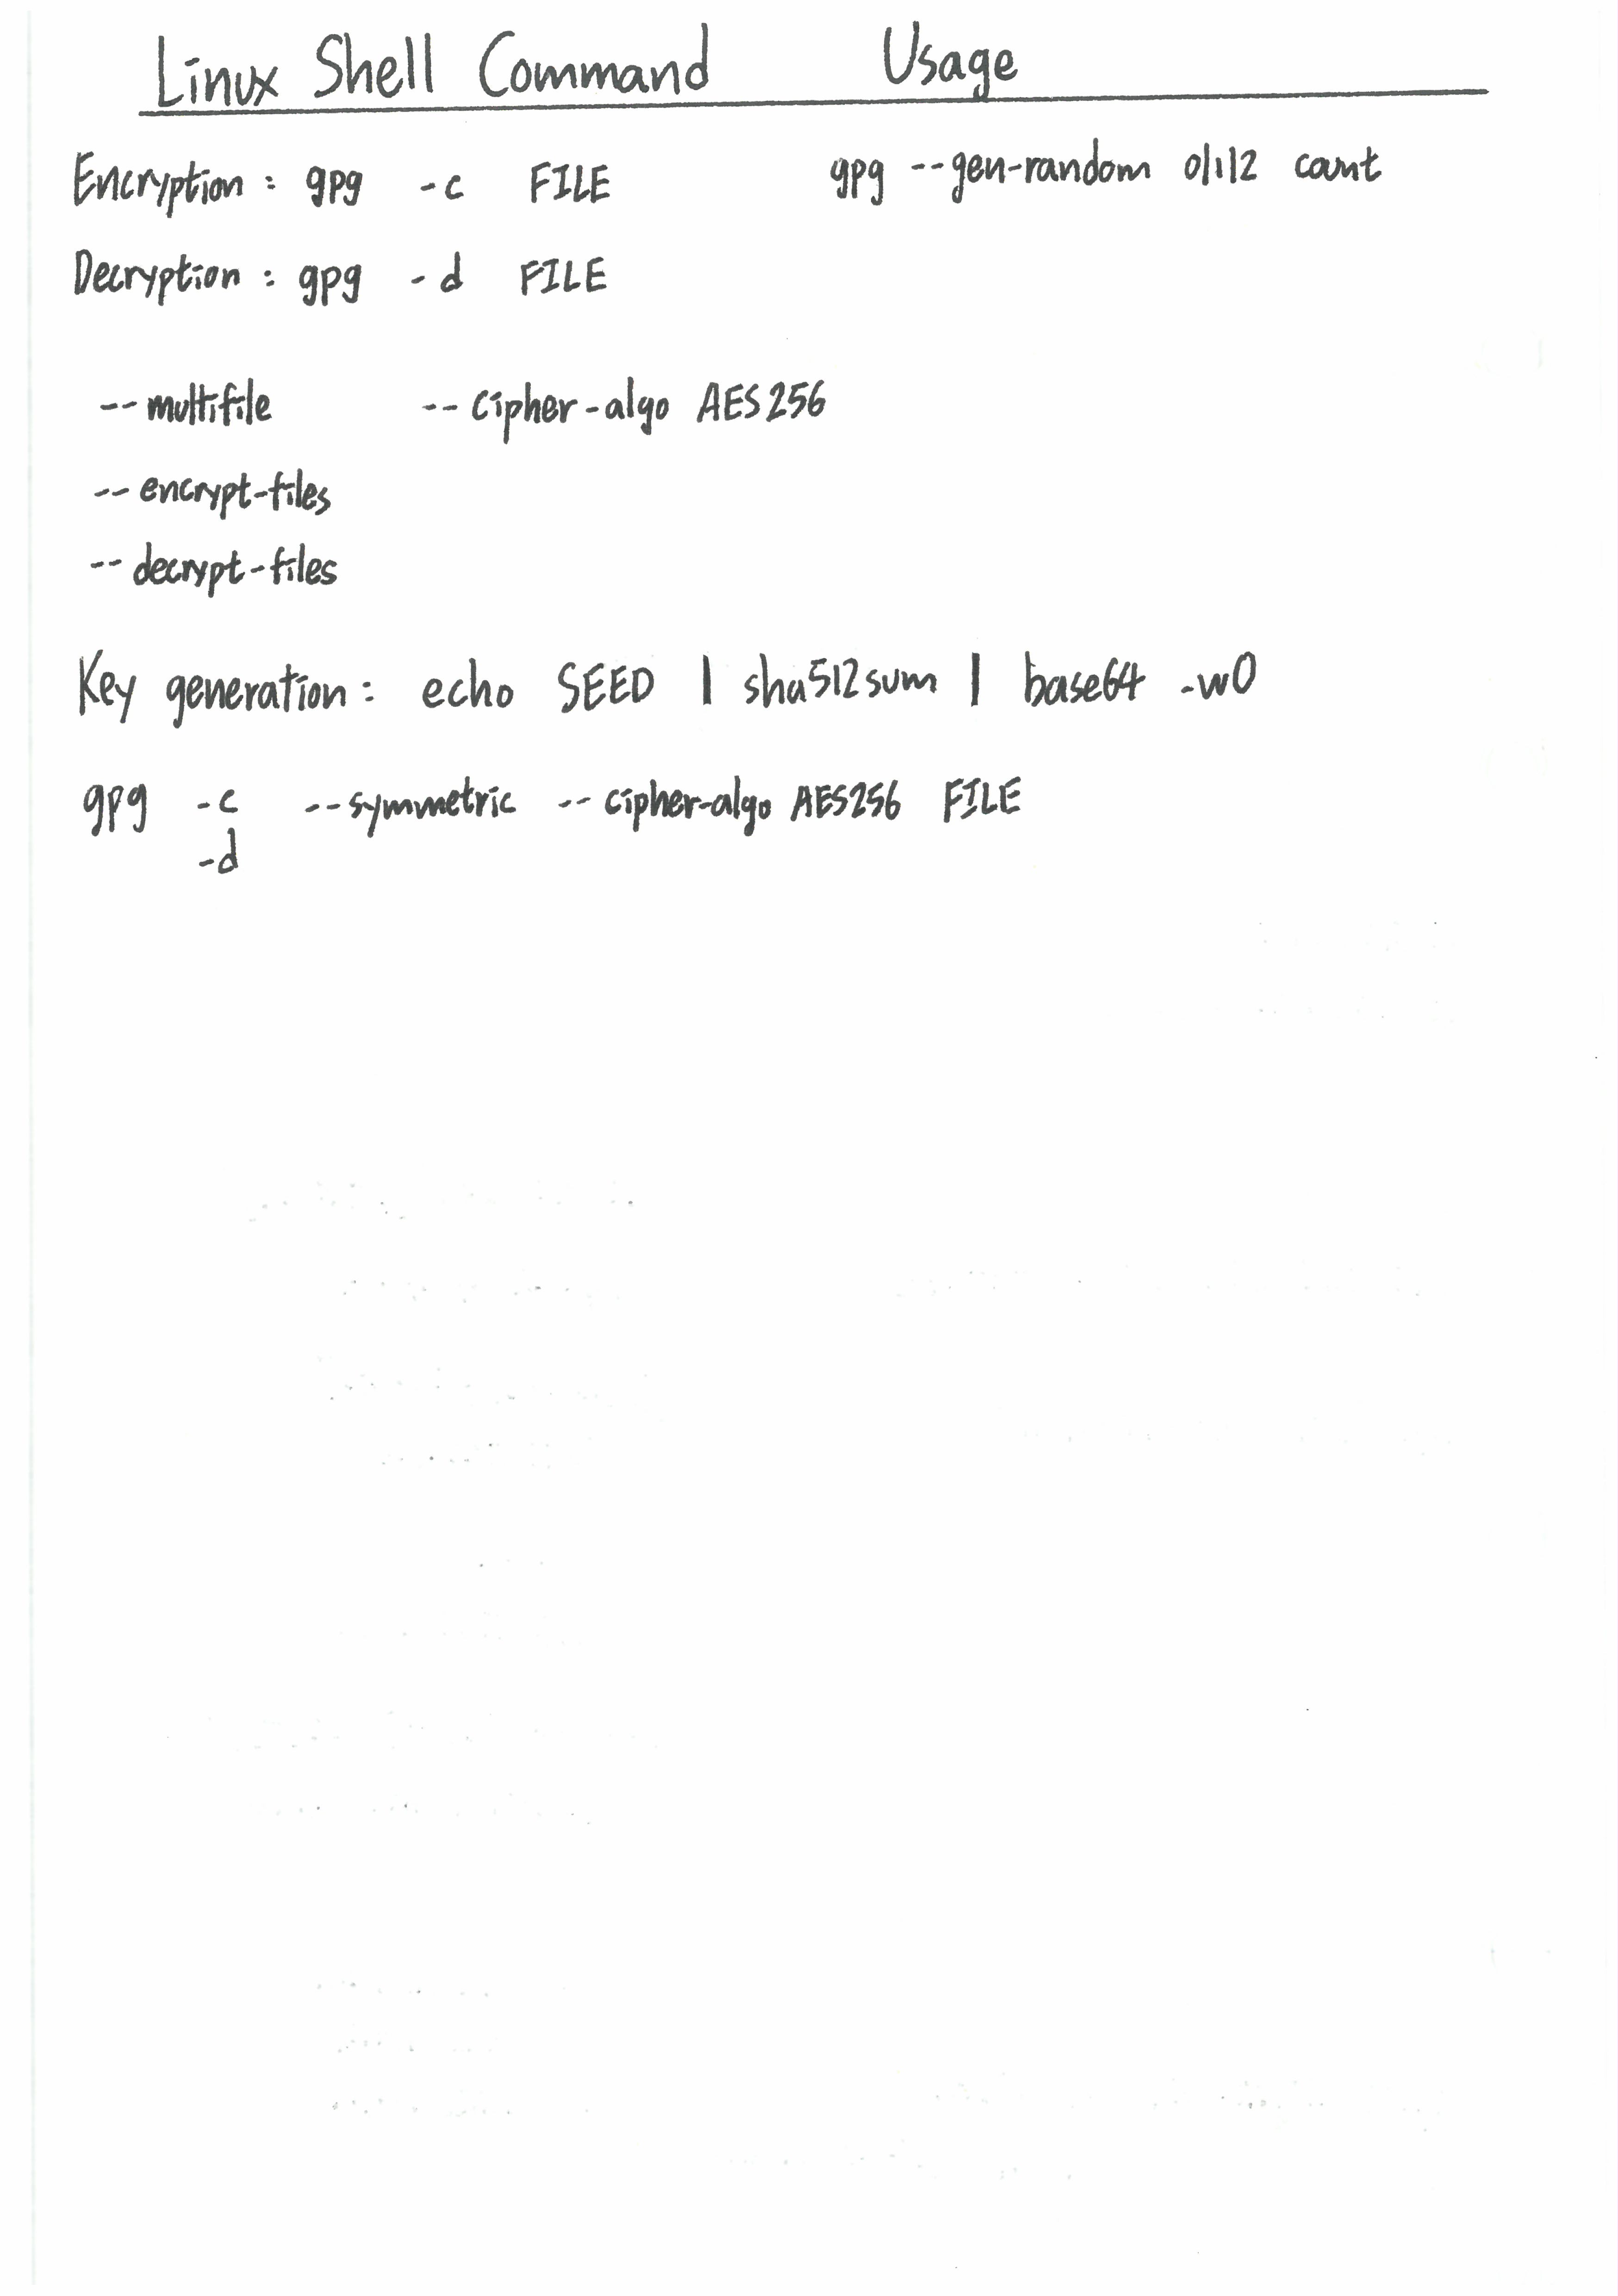 Linux Shell Command Usage
Encryption : gpg -c FILE gpg --gen-random 0|1|2 count
Decryption : gpg -d FILE
--multifile --cipher-algo AES256
--encrypt-files
--decrypt-files
Key generation : echo SEED | sha512sum | base64 -w0
gpg -c --symmetric --cipher-algo AES256 FILE
-d